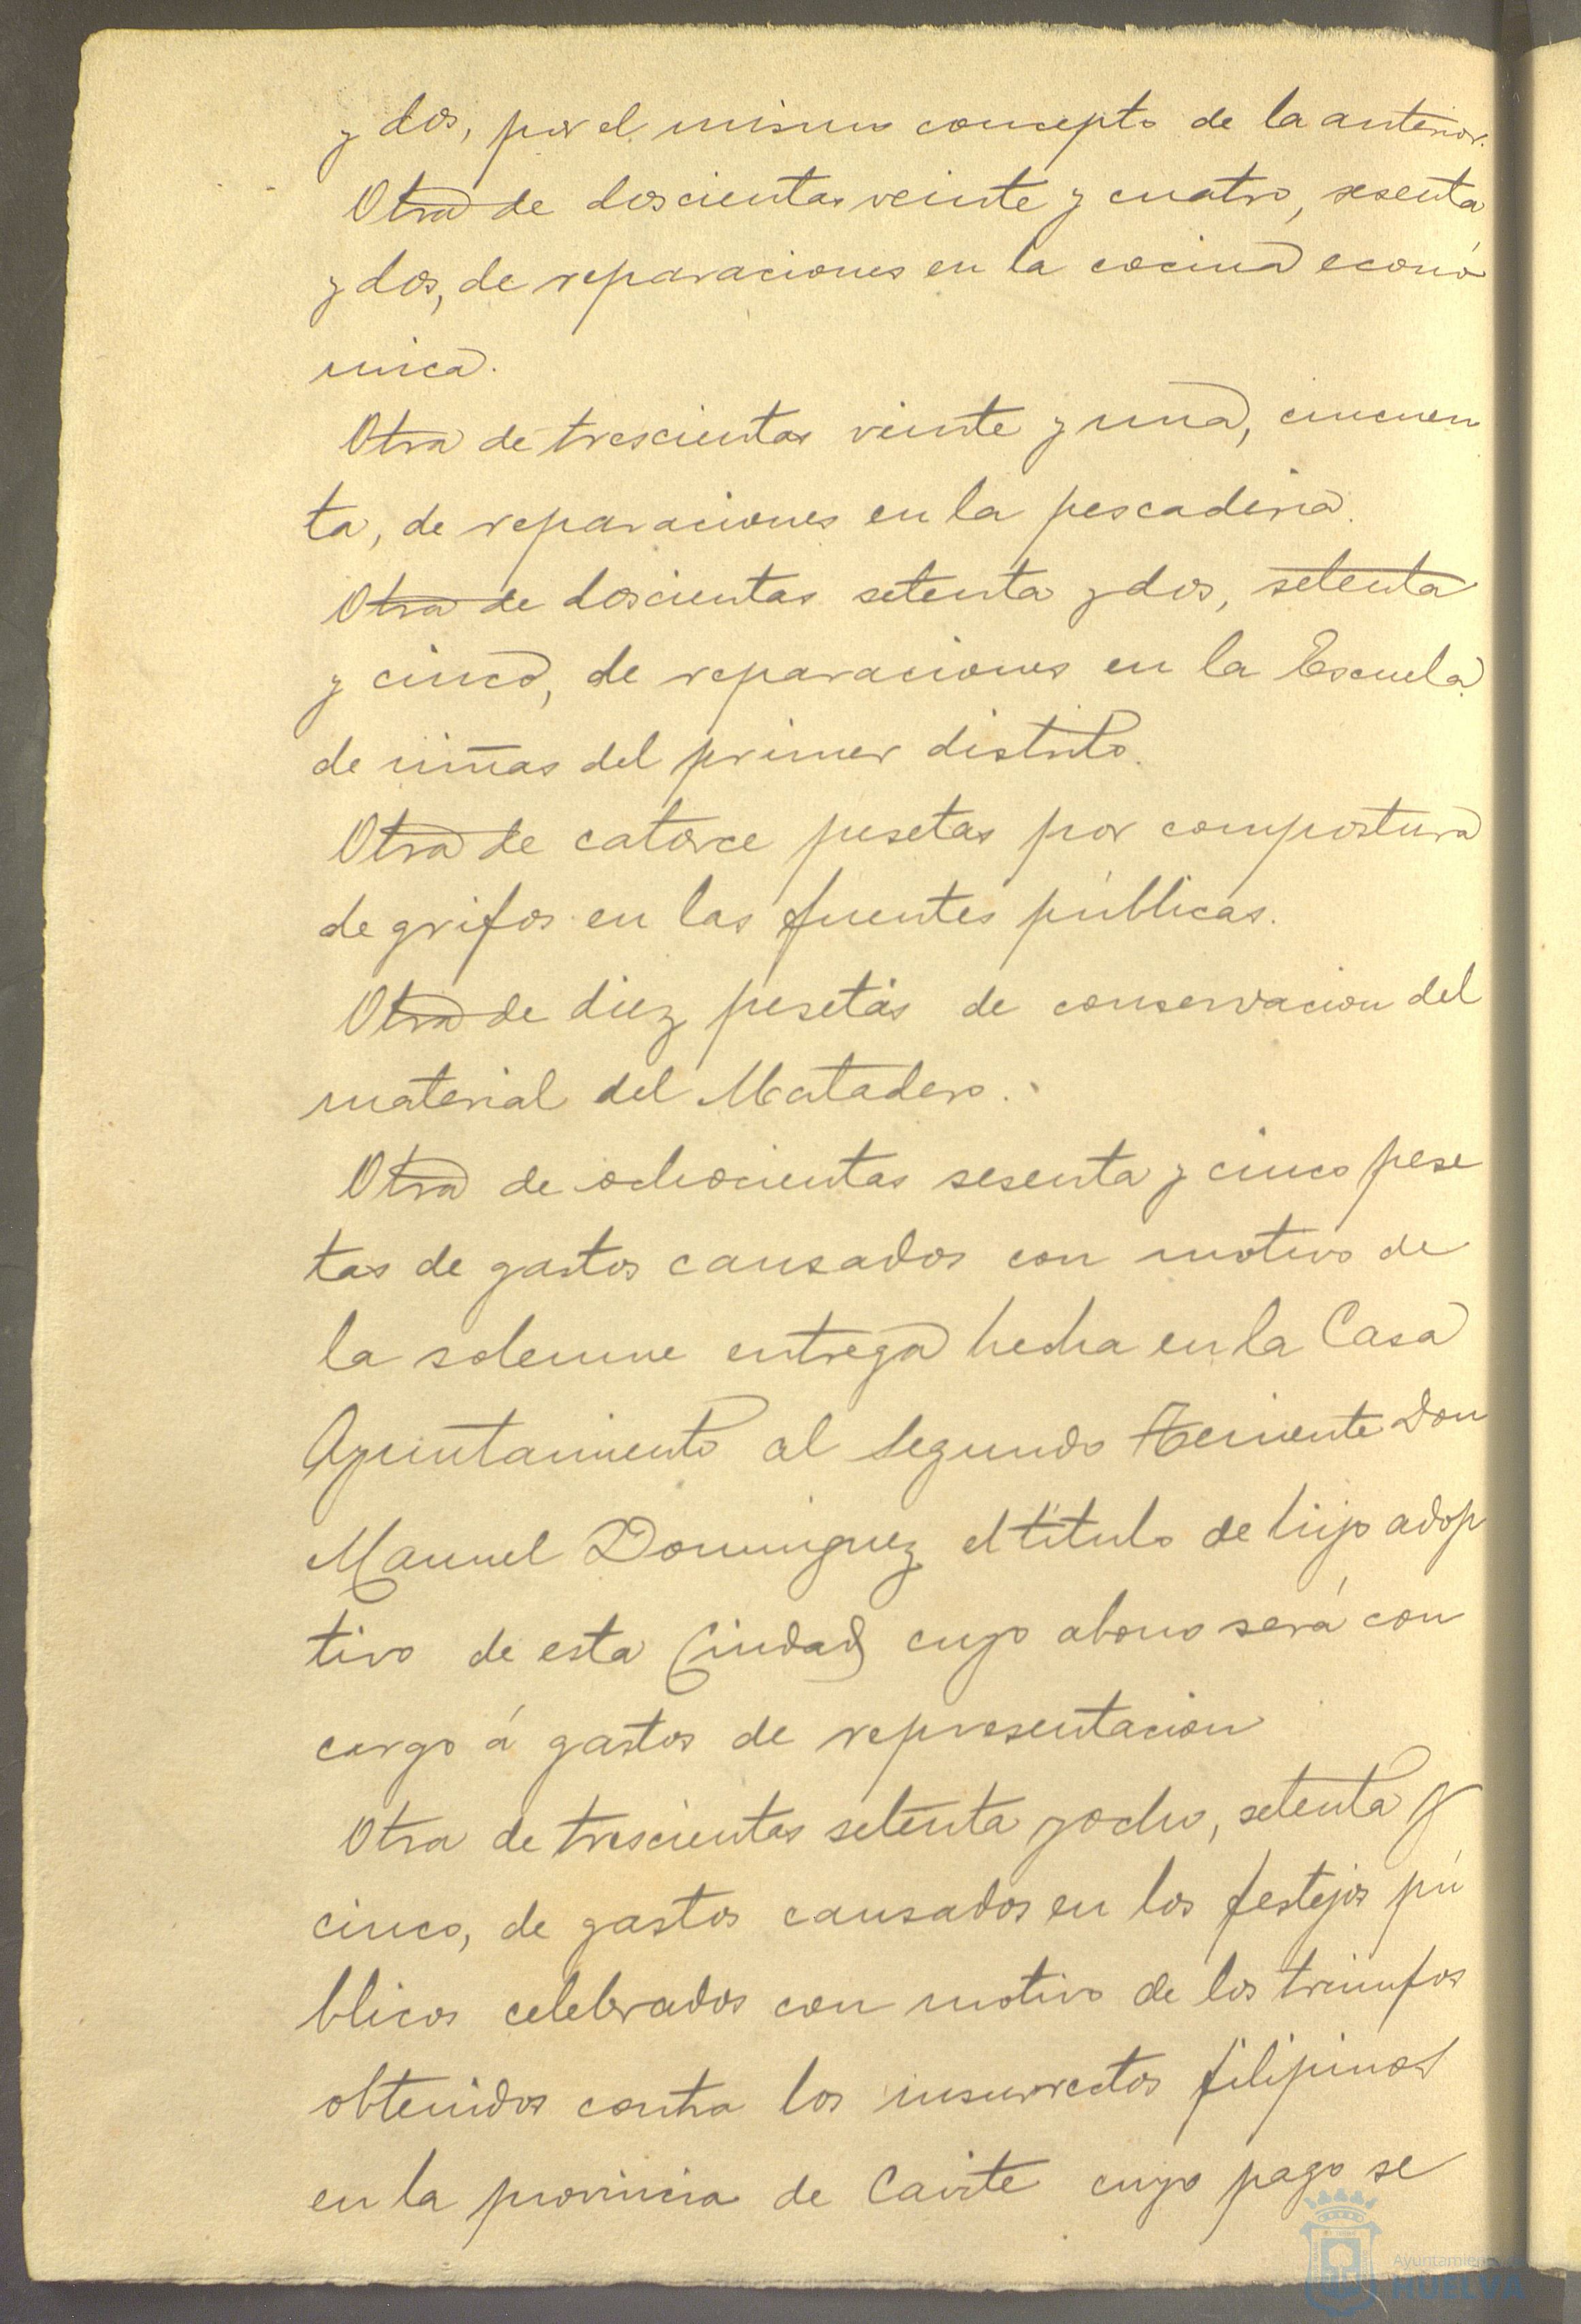 y dos, por el mismo concepto de la anterior.
Otra de doscientas veinte y cuatro, sesenta
y dos, de reparaciones en la cocina econó
mica.
Otra de trescientas veinte y una, cincuen
ta, de reparaciones en la pescaderia.
Otra de doscientas setenta y dos, setenta
y cinco, de reparaciones en la Escuela
de niñas del primer distrito.
Otra de catorce pesetas por compostura
de grifos en las fuentes públicas.
Otra de diez pesetas de conservacion del
material del Matadero.
Otra de ochocientas sesenta y cinco pese
tas de gastos causados con motivo de
la solemne entrega hecha en la Casa
Ayuntamiento al Segundo Teniente Don
Manuel Dominguez el título de hijo adop
tivo de esta Ciudad cuyo abono será con
cargo á gastos de representacion
Otra de trescientas setenta y ocho, setenta y
cinco, de gastos causados en los festejos pú
blicos celebrados con motivo de los triunfos
obtenidos contra los insurrectos filipinos
en la provincia de Cavite cuyo pago se
Ayuntamiento
HUELVA